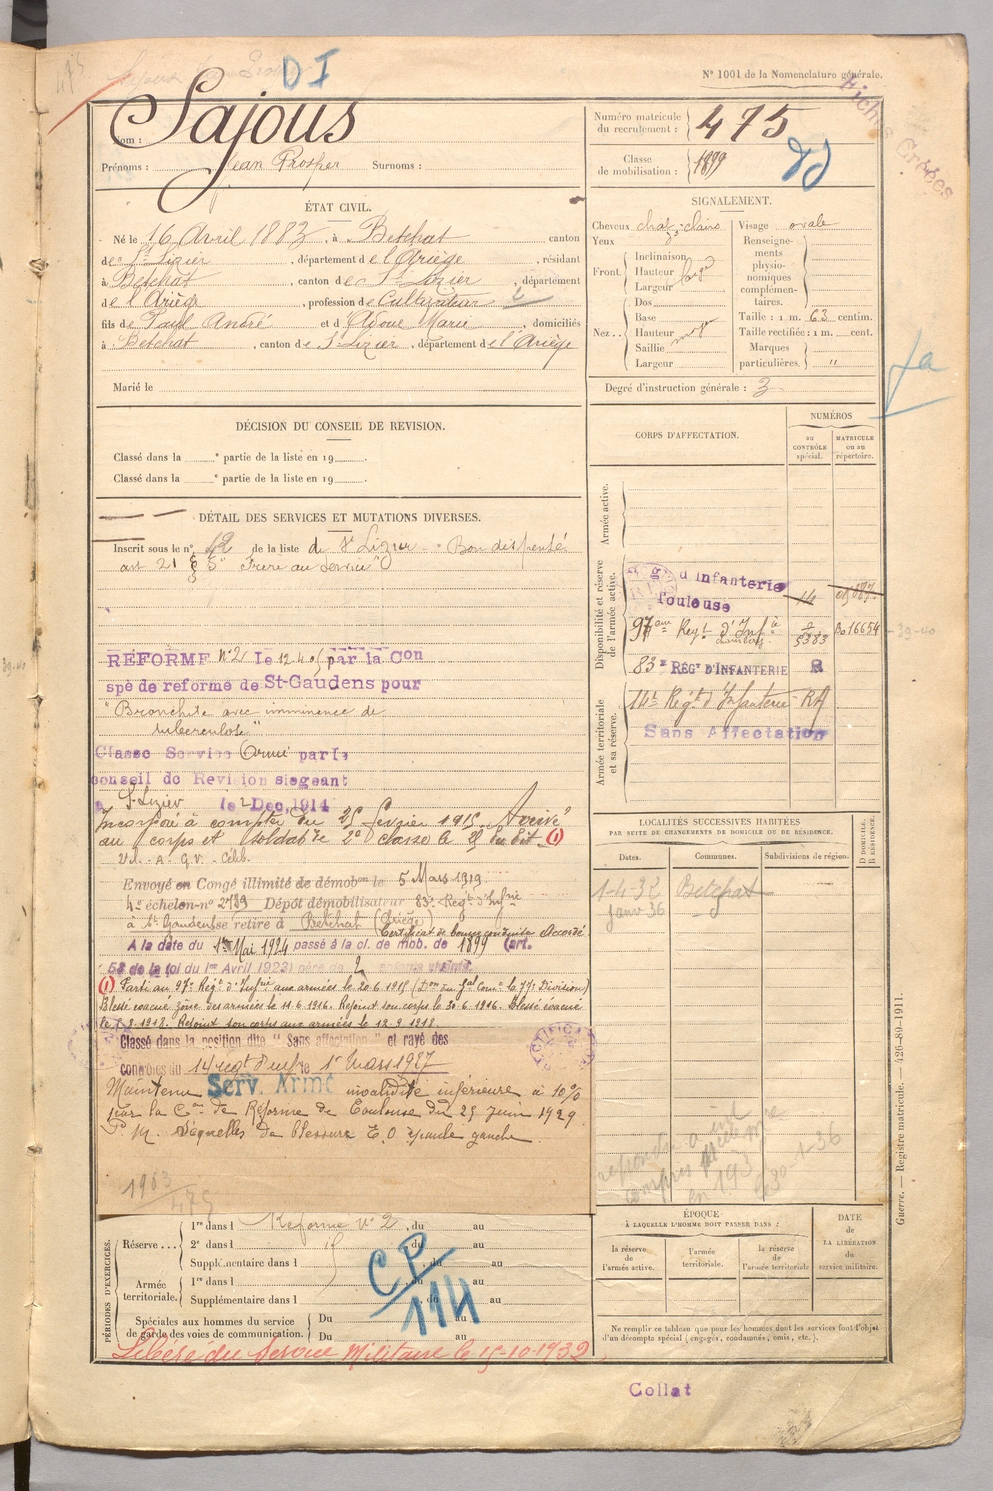 D I
Nº 1001 de la Nomenclature générale.
Fiches Croisées
Nom : Sajous
Prénoms : Jean Prosper Surnoms :
Numéro matricule du recrutement : 475
Classe de mobilisation : 1899
ÉTAT CIVIL.
Né le 16 Avril 1883, à Betchat canton
de St Lizier, département de l'Ariège, résidant
à Betchat, canton de St Lizier, département
de l'Ariège, profession de Cultivateur
fils de Paul André et d'Adoue Marie, domiciliés
à Betchat, canton de St Lizier, département de l'Ariège
Marié le
SIGNALEMENT.
Cheveux chat. clairs
Yeux
Front. Inclinaison
Hauteur
Largeur
Nez. Dos
Base
Hauteur
Saillie
Largeur
Visage ovale
Renseignements physionomiques complémentaires.
Taille : 1 m. 63 centim.
Taille rectifiée : 1 m. cent.
Marques particulières. "
Degré d'instruction générale : 3
DÉCISION DU CONSEIL DE REVISION.
Classé dans la e partie de la liste en 19 .
Classé dans la e partie de la liste en 19 .
DÉTAIL DES SERVICES ET MUTATIONS DIVERSES.
Inscrit sous le nº 42 de la liste de St Lizier - Bon dispensé
art 21 § 5° "Frère au service"
REFORMÉ Nº 2 le 12.4.05 par la Con
spè de reforme de St-Gaudens pour
"Bronchite avec imminence de
tuberculose"
Classé Service Armé par le
conseil de Revision siegeant
à St Lizier le 2 Dec. 1914
Incorporé à compter du 25 février 1915. Arrivé
au corps et soldat de 2e classe le 25 du dit (1)
Vd. - A - G.V. - Célib.
Envoyé en Congé illimité de démobon le 5 Mars 1919.
4e échelon nº 2789 Dépôt démobilisateur 83e Regt d'Infrie
à St Gaudens se retire à Betchat (Ariège)
Certificat de bonne conduite Accordé
A la date du 1er Mai 1924 passé à la cl. de mob. de 1899 (art.
58 de la loi du 1er Avril 1923) père de 2 enfants vivants.
(1) Parti au 97e Regt d'Infrie aux armées le 20.6.1915 (Don du Gal Comt la 77e Division)
Blessé évacué zône des armées le 11.6.1916. Rejoint son corps le 30.6.1916. Blessé évacué
Rejoint son corps aux armées le 12.9.1918.
Classé dans la position dite "Sans affectation" et rayé des
contrôles du 14 regt d'inf le 1r Mars 1927
Maintenu Serv. Armé invalidité inférieure à 10%
par la Con de Réforme de Toulouse du 25 juin 1929
P. M. Séquelles de blessure E.O épaule gauche
1983
475
CORPS D'AFFECTATION.
NUMÉROS
au CONTRÔLE spécial.
MATRICULE ou au répertoire.
Armée active.
Disponibilité et réserve de l'armée active.
d'Infanterie
Toulouse
97ème Regt d'Infie
Chambéry
Bo 16654
39-40
83e REGt D'INFANTERIE
Armée territoriale et sa réserve.
14e Regt d'Infanterie RA
Sans Affectation
LOCALITÉS SUCCESSIVES HABITÉES
PAR SUITE DE CHANGEMENTS DE DOMICILE OU DE RÉSIDENCE.
Dates. Communes. Subdivisions de région. D DOMICILE. R RÉSIDENCE.
1-4-32 Betchat
Janv 36 - d -
ÉPOQUE
À LAQUELLE L'HOMME DOIT PASSER DANS :
la réserve de l'armée active.
l'armée territoriale.
la réserve de l'armée territoriale
DATE DE LA LIBÉRATION du service militaire.
Ne remplir ce tableau que pour les hommes dont les services font l'objet
d'un décompte spécial (engagés, condamnés, omis, etc.).
PÉRIODES D'EXERCICES.
Réserve... 1re dans l Réforme Nº 2, du au
2e dans l , du au
Supplémentaire dans l , du au
Armée territoriale. 1re dans l , du au
Supplémentaire dans l , du au
Spéciales aux hommes du service
de garde des voies de communication. Du au
Du au
CP
114
Libéré du Service Militaire le 15-10-1932
Collat
Guerre. — Registre matricule. — 426-89-1911.